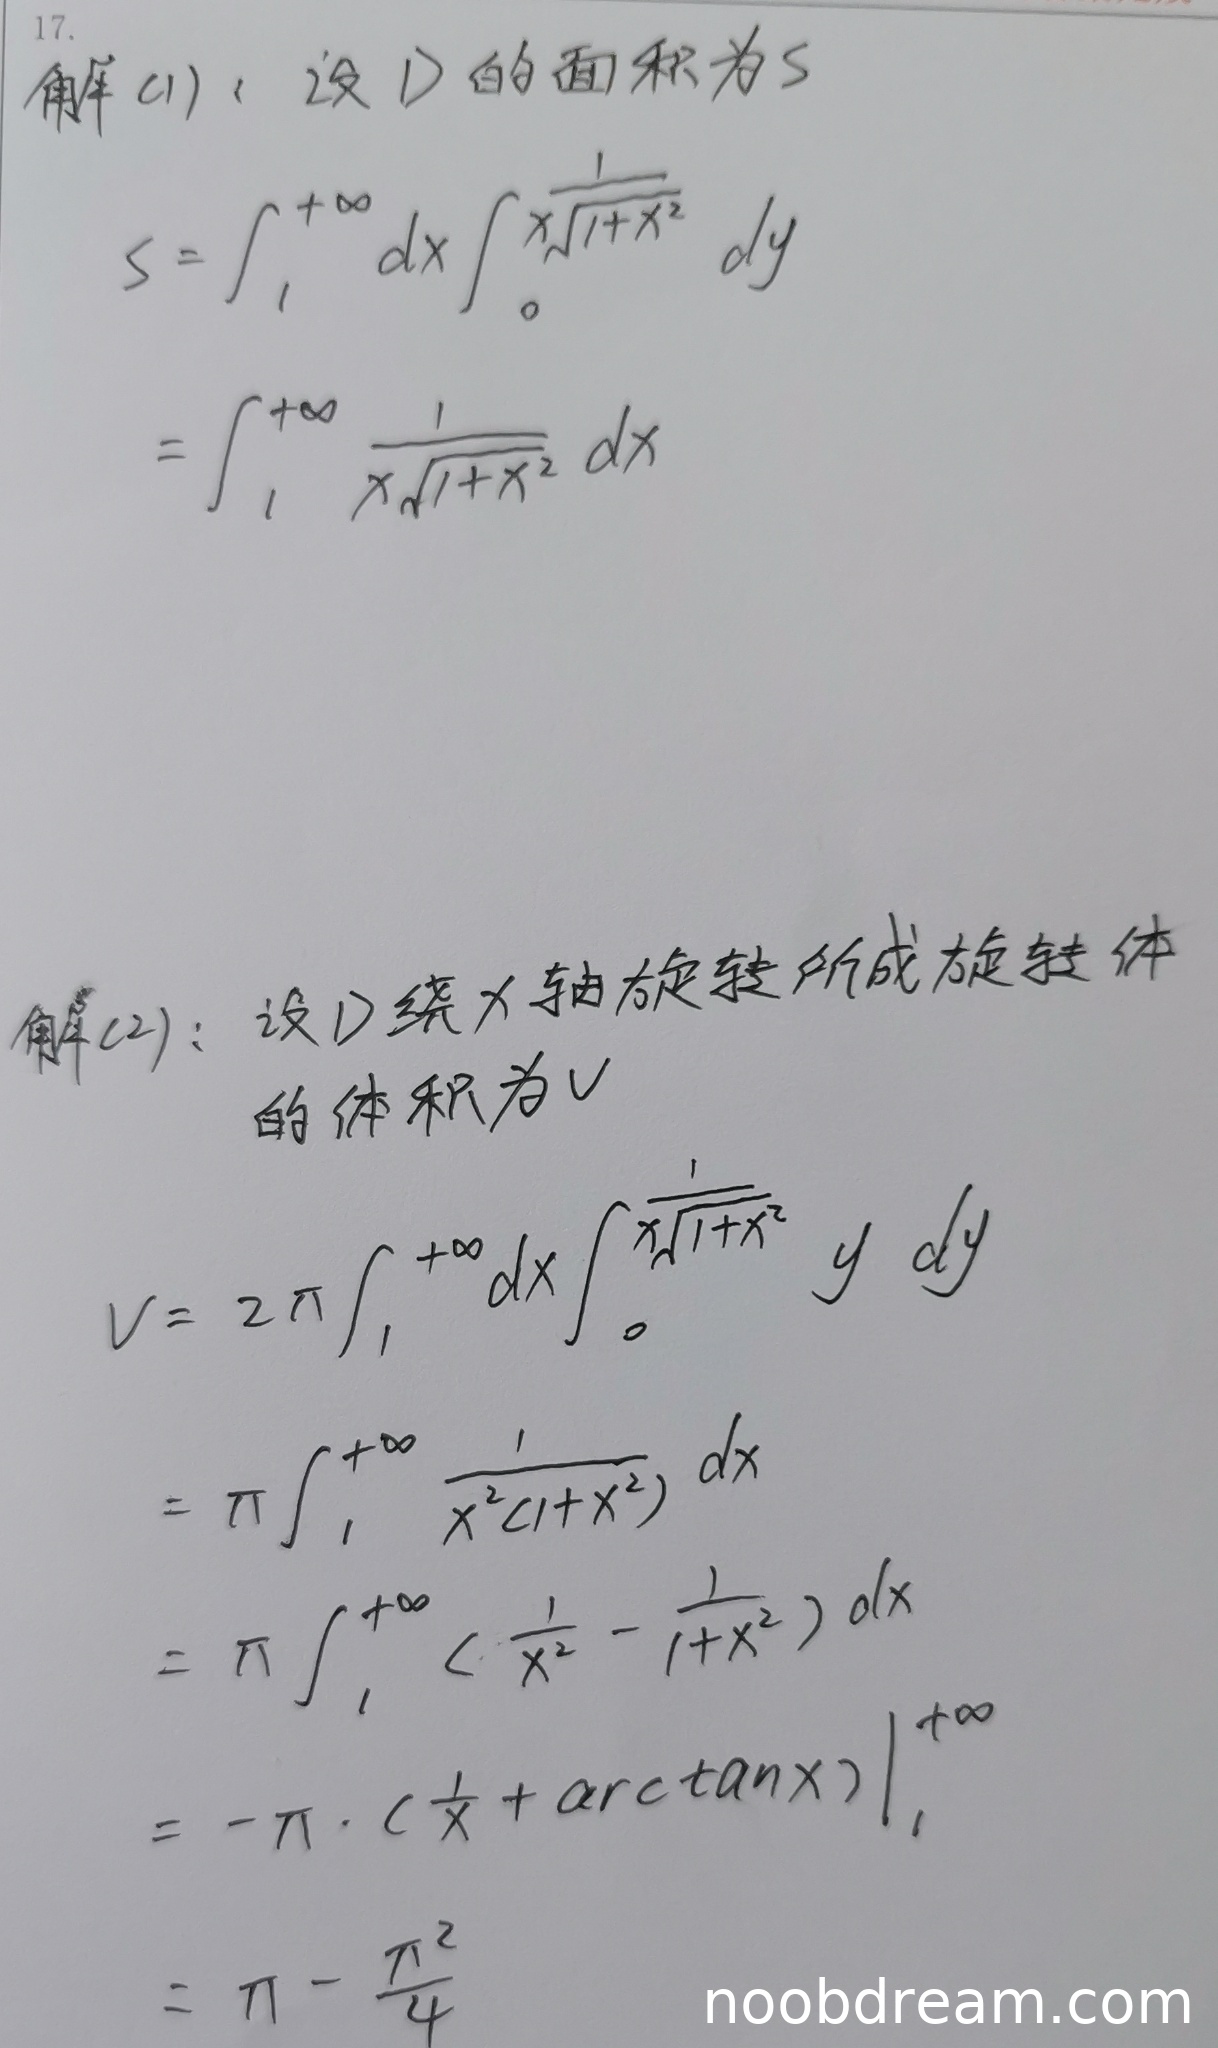 17.
解(1): 设D的面积为S
S = ∫₁^{+∞} dx ∫₀^{1/(x√(1+x²))} dy
= ∫₁^{+∞} 1/(x√(1+x²)) dx
解(2): 设D绕x轴旋转所成旋转体
的体积为V
V = 2π ∫₁^{+∞} dx ∫₀^{1/(x√(1+x²))} y dy
= π ∫₁^{+∞} 1/(x²(1+x²)) dx
= π ∫₁^{+∞} (1/x² - 1/(1+x²)) dx
= -π · (1/x + arctanx) |₁^{+∞}
= π - π²/4
noobdream.com